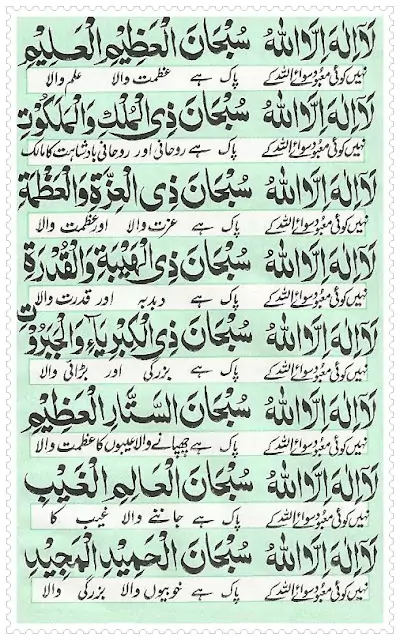 لَا اِلٰهَ اِلَّا اللهُ سُبْحَانَ الْعَظِيْمِ الْعَلِيْمِ
نہیں کوئی معبود سوائے اللہ کے پاک ہے عظمت والا علم والا
لَا اِلٰهَ اِلَّا اللهُ سُبْحَانَ ذِي الْمُلْكِ وَالْمَلَكُوْتِ
نہیں کوئی معبود سوائے اللہ کے پاک ہے روحانی اور روحانی بادشاہت کا مالک
لَا اِلٰهَ اِلَّا اللهُ سُبْحَانَ ذِي الْعِزَّةِ وَالْعَظْمَةِ
نہیں کوئی معبود سوائے اللہ کے پاک ہے عزت والا اور عظمت والا
لَا اِلٰهَ اِلَّا اللهُ سُبْحَانَ ذِي الْهَيْبَةِ وَالْقُدْرَةِ
نہیں کوئی معبود سوائے اللہ کے پاک ہے دبدبہ اور قدرت والا
لَا اِلٰهَ اِلَّا اللهُ سُبْحَانَ ذِي الْكِبْرِيَآءِ وَالْجَبَرُوْتِ
نہیں کوئی معبود سوائے اللہ کے پاک ہے بزرگی اور بڑائی والا
لَا اِلٰهَ اِلَّا اللهُ سُبْحَانَ السَّتَّارِ الْعَظِيْمِ
نہیں کوئی معبود سوائے اللہ کے پاک ہے چھپانے والا عیبوں کا عظمت والا
لَا اِلٰهَ اِلَّا اللهُ سُبْحَانَ الْعَالِمِ الْغَيْبِ
نہیں کوئی معبود سوائے اللہ کے پاک ہے جاننے والا غیب کا
لَا اِلٰهَ اِلَّا اللهُ سُبْحَانَ الْحَمِيْدِ الْمَجِيْدِ
نہیں کوئی معبود سوائے اللہ کے پاک ہے خوبیوں والا بزرگی والا